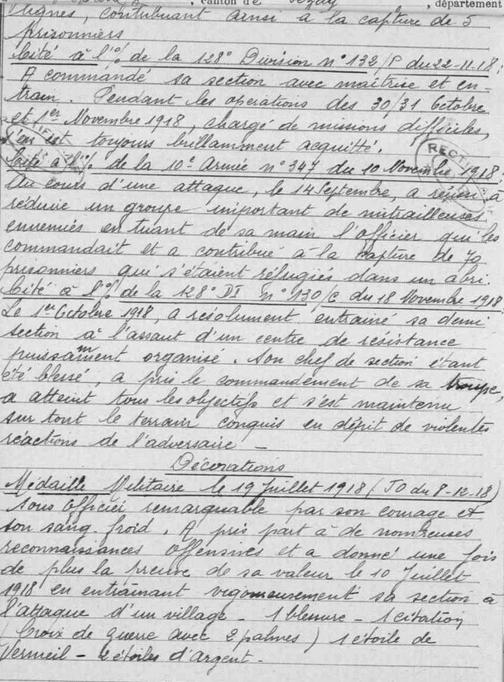 canton de département
lignes, contribuant ainsi à la capture de 5
prisonniers
Cité à l'o/ de la 128° Division n° 132/P du 22-11.18:
A commandé sa section avec maîtrise et en-
train. Pendant les opérations des 30/31 Octobre
et 1er Novembre 1918, chargé de missions difficiles,
s'en est toujours brillamment acquitté.
Cité à l'o/ de la 10e Armée n° 347 du 10 Novembre 1918:
Au cours d'une attaque, le 14 Septembre, a réussi à
réduire un groupe important de mitrailleuses
ennemies en tuant de sa main l'officier qui les
commandait et a contribué à la capture de 70
prisonniers qui s'étaient réfugiés dans un abri.
Cité à l'o/ de la 128e DI n° 130/c du 18 Novembre 1918
Le 1er Octobre 1918, a résolument entrainé sa demi
section à l'assaut d'un centre de résistance
puissamment organisé. Son chef de section étant
été blessé, a pris le commandement de sa troupe,
a atteint tous les objectifs et s'est maintenu
sur tout le terrain conquis en dépit de violentes
réactions de l'adversaire _
Décorations
Médaille Militaire le 19 Juillet 1918 (JO du 8-12-18)
Sous Officier remarquable par son courage et
son sang froid. A pris part à de nombreuses
reconnaissances offensives et a donné une fois
de plus la preuve de sa valeur le 10 Juillet
1918 en entraînant vigoureusement sa section à
l'attaque d'un village - 1 blessure - 1 citation
(Croix de guerre avec 2 palmes) 1 étoile de
Vermeil - 2 étoiles d'Argent -